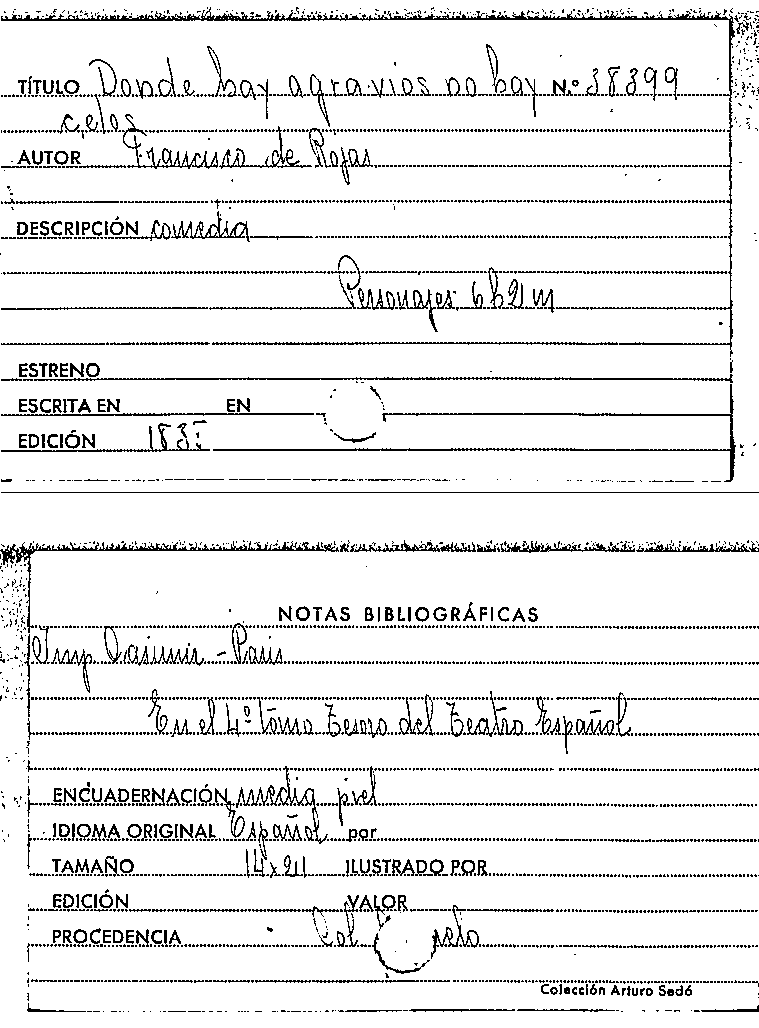 TÍTULO Donde hay agravios no hay N.º 38399
celos
AUTOR Francisco de Rojas
DESCRIPCIÓN comedia
Personajes 6 h 2 m
ESTRENO
ESCRITA EN EN
EDICIÓN
NOTAS BIBLIOGRÁFICAS
Imp Casimir - Paris
En el 4º tomo Tesoro del Teatro Español
ENCUADERNACIÓN media piel
IDIOMA ORIGINAL Español por
TAMAÑO 14 x 21 ILUSTRADO POR
EDICIÓN VALOR
PROCEDENCIA Col
Colección Arturo Sedó